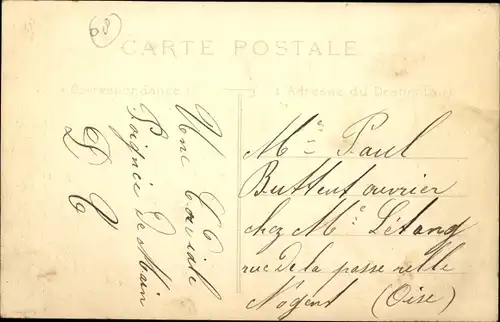 68
CARTE POSTALE
Correspondance
Adresse du Destinataire
Une Cordiale
Poignée De Main
D C
Mr Paul
Buttent ouvrier
chez Me Létang
rue de la passe relle
Nogent (Oise)